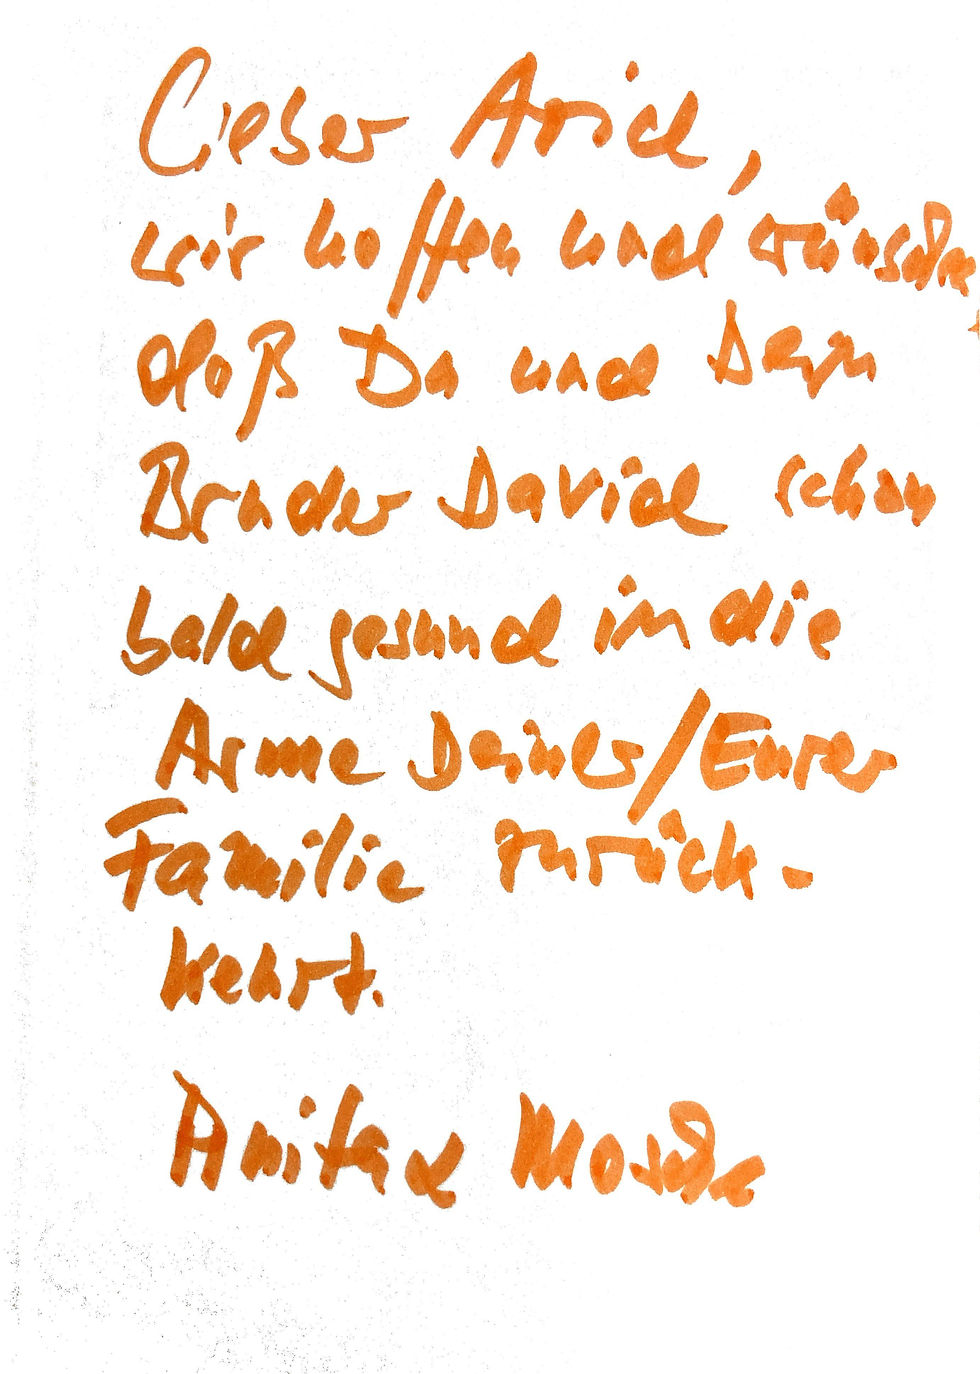 Lieber Ariel,
wir hoffen und wünschen,
daß Du und Dein
Bruder David schon
bald gesund in die
Arme Deiner/Eurer
Familie zurück-
kehrt.
Anita &